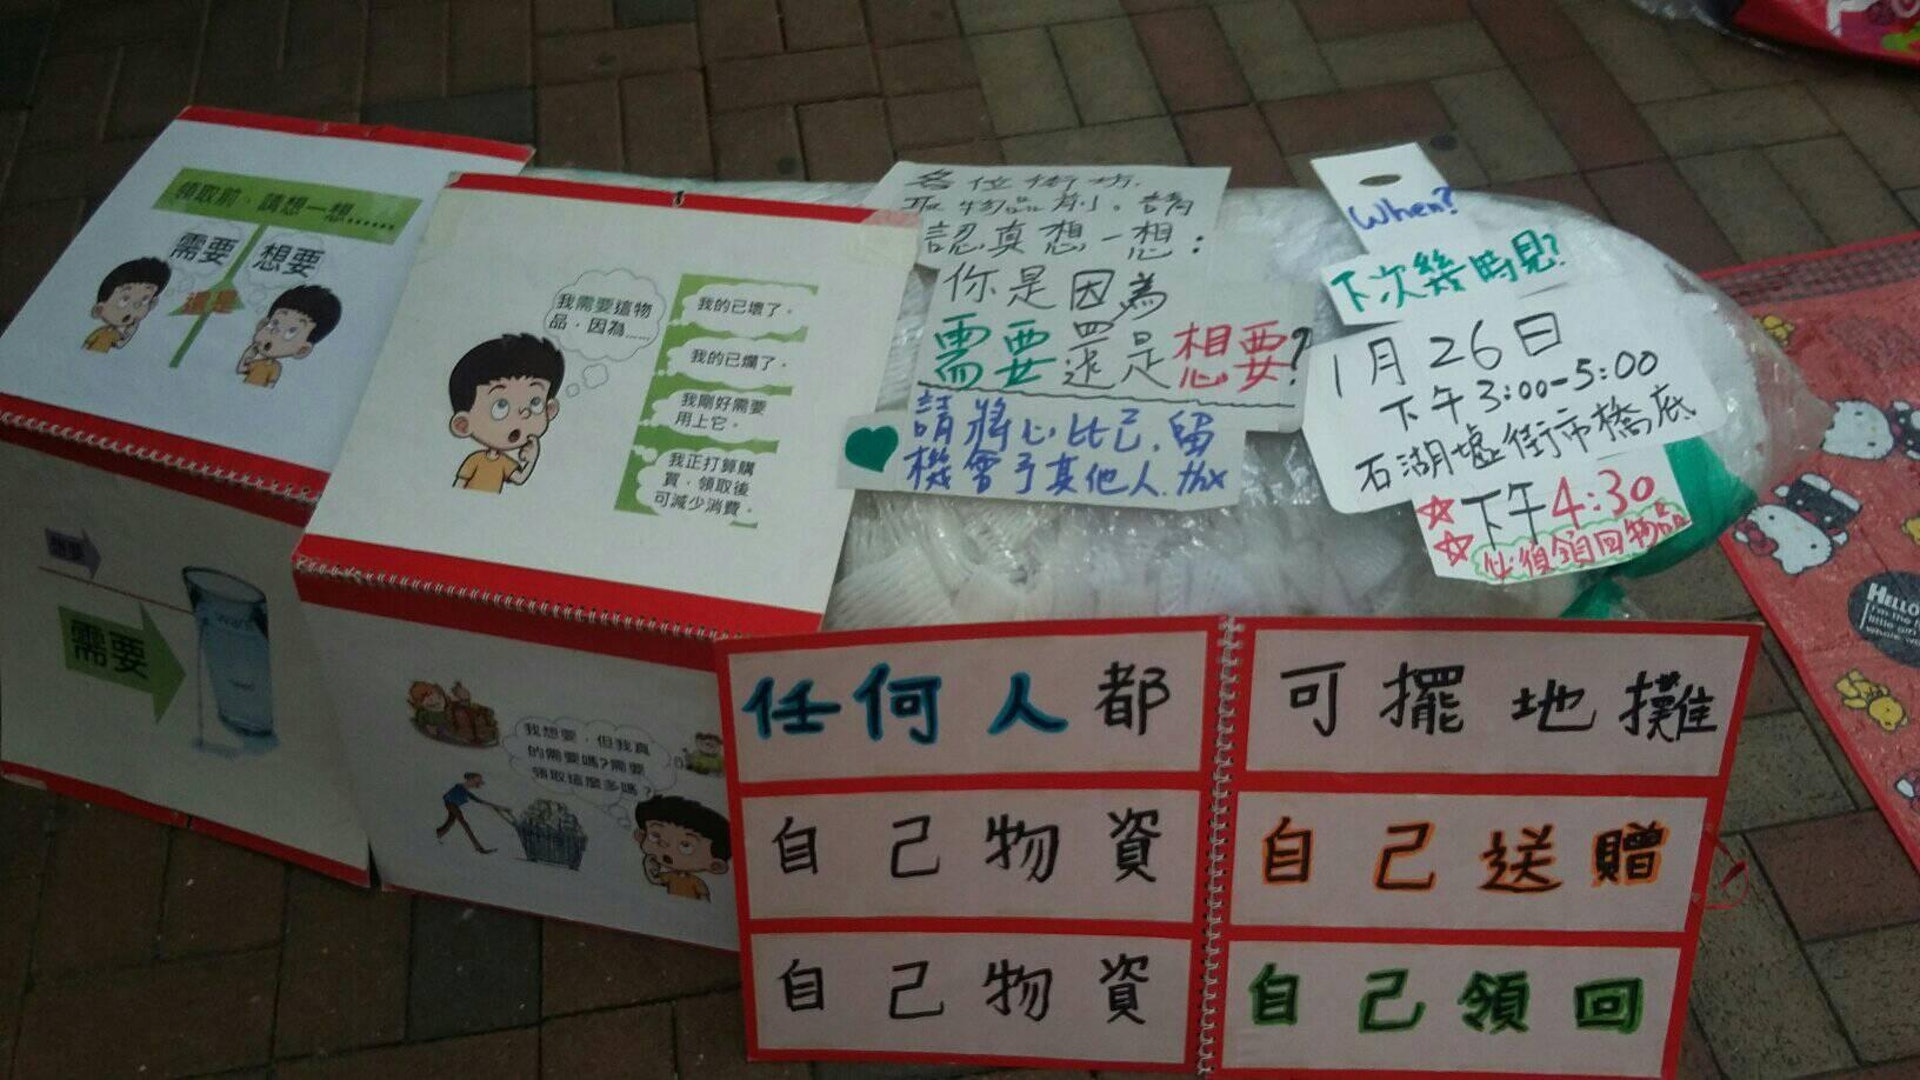 領取前，請想一想......
需要
想要
還是
需要
我需要這物
品，因為......
我的已壞了。
我的已爛了。
我剛好需要
用上它。
我正打算購
買，領取後
可減少消費。
我想要，但我真
的需要嗎?需要
領取這麼多嗎?
各位街坊，
取物品前。請
認真想一想：
你是因為
需要還是想要?
請將心比己，留
機會予其他人.
When?
下次幾時見?
1月26日
下午3:00-5:00
石湖墟街市橋底
☆下午4:30
☆必須領回物品
任何人都 可擺地攤
自己物資 自己送贈
自己物資 自己領回
HELLO